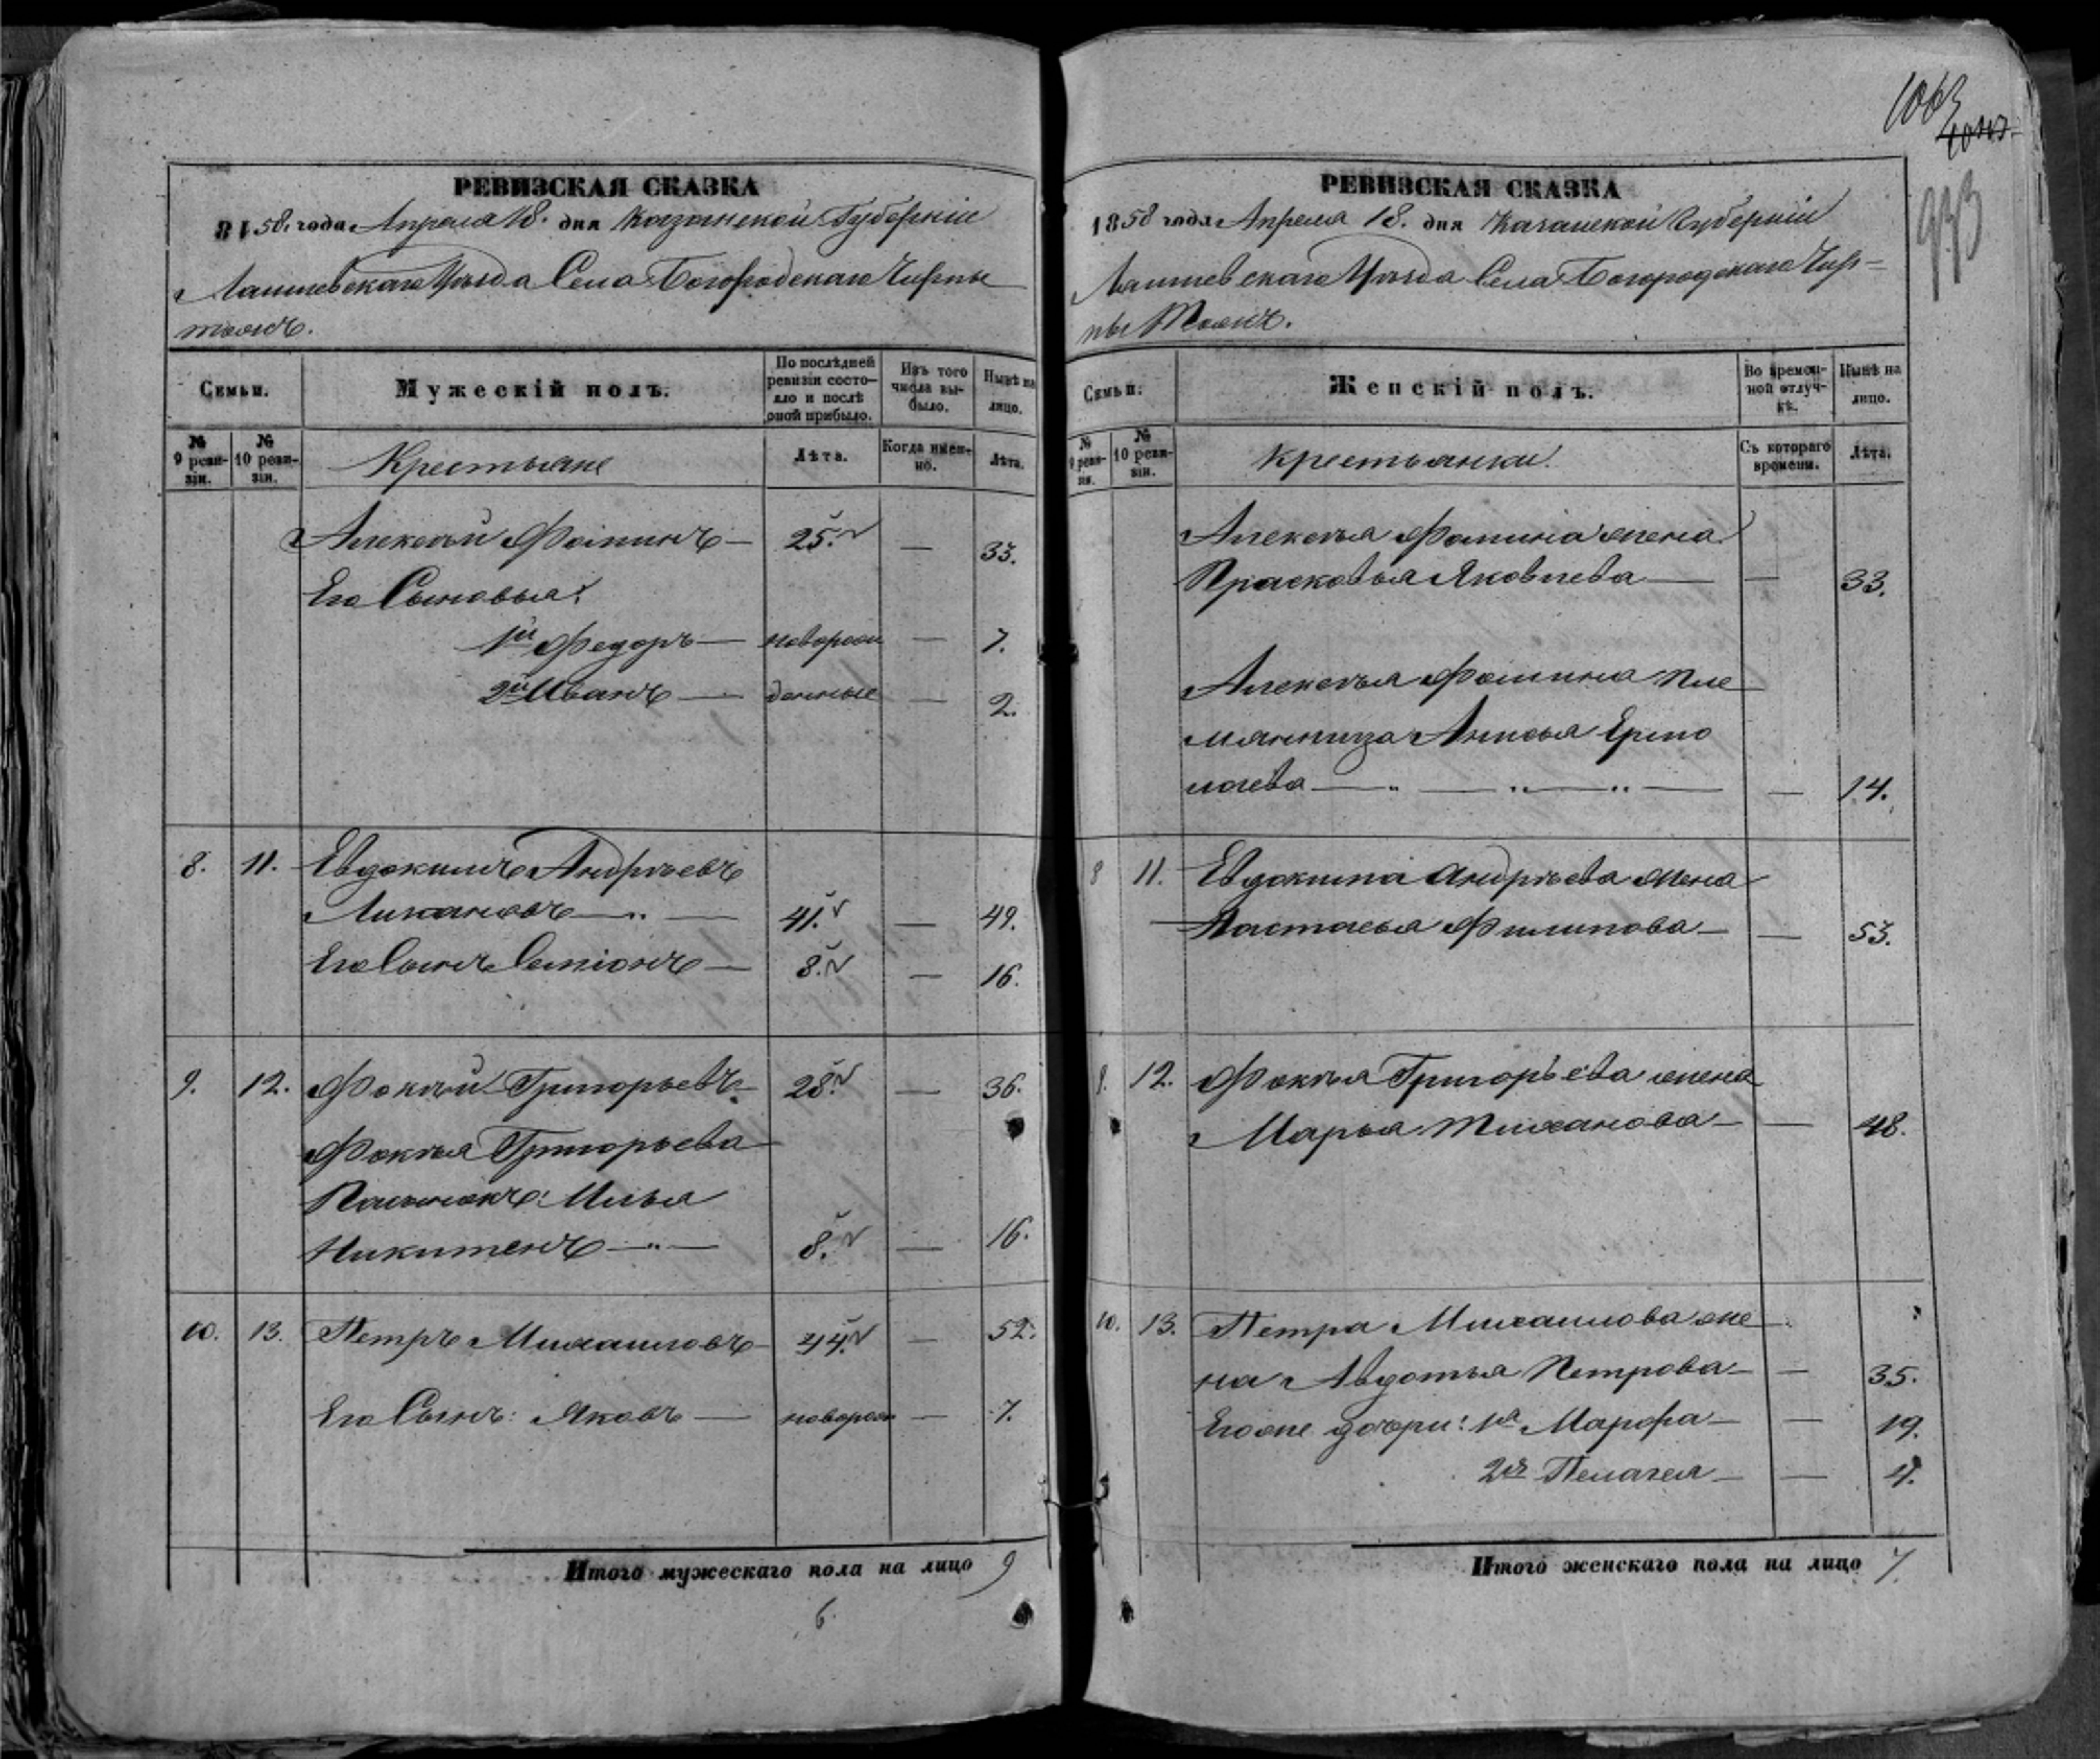 РЕВИЗСКАЯ СКАЗКА
8158. года Апреля 18. дня Казанской Губернiи
Лаишевскаго Уѣзда Села Богородскаго Чирпы
тожъ.
Семьи.
Мужескiй полъ.
По послѣдней ревизiи состояло и послѣ оной прибыло.
Изъ того числа выбыло.
Нынѣ на лицо.
№ 9 ревизiи.
№ 10 ревизiи.
Крестьяне
Лѣта.
Когда именно.
Лѣта.
Алексѣй Фоминъ — 25. — 33.
Его Сыновья:
1й Федоръ — новорож — 7.
2й Иванъ — денные — 2.
8. 11. Евдокимъ Андрѣевъ
41. — 49.
Его Сынъ Семiонъ — 8. — 16.
9. 12. Фокѣй Григорьевъ. 28. — 36.
Фокѣя Григорьева
Илья
8. — 16.
10. 13. Петръ Михаиловъ 44. — 52.
Его Сынъ: Яковъ — новорож — 7.
Итого мужескаго пола на лицо 9
6.
1063
973
РЕВИЗСКАЯ СКАЗКА
1858 года Апреля 18. дня Казанской Губернiи
Лаишевскаго Уѣзда Села Богородскаго Чир=
пы Тожъ.
Семьи.
Женскiй полъ.
Во временной отлучкѣ.
Нынѣ на лицо.
№ 9 ревизiи.
№ 10 ревизiи.
крестьянки.
Съ котораго времени.
Лѣта.
Алексѣя Фомина жена
Прасковья Яковлева — — 33.
Алексѣя Фомина пле
мянница Анисья Ермо
лаева — — 14.
8 11. Евдокима Андрѣева жена
Настасья Филипова — — 53.
9. 12. Фокѣя Григорьева жена
Марья — — 48.
10. 13. Петра Михаилова же
на Авдотья Петрова — — 35.
Его же дочери: 1я Марфа — — 19.
2я Пелагея — — 4.
Итого женскаго пола на лицо 7.